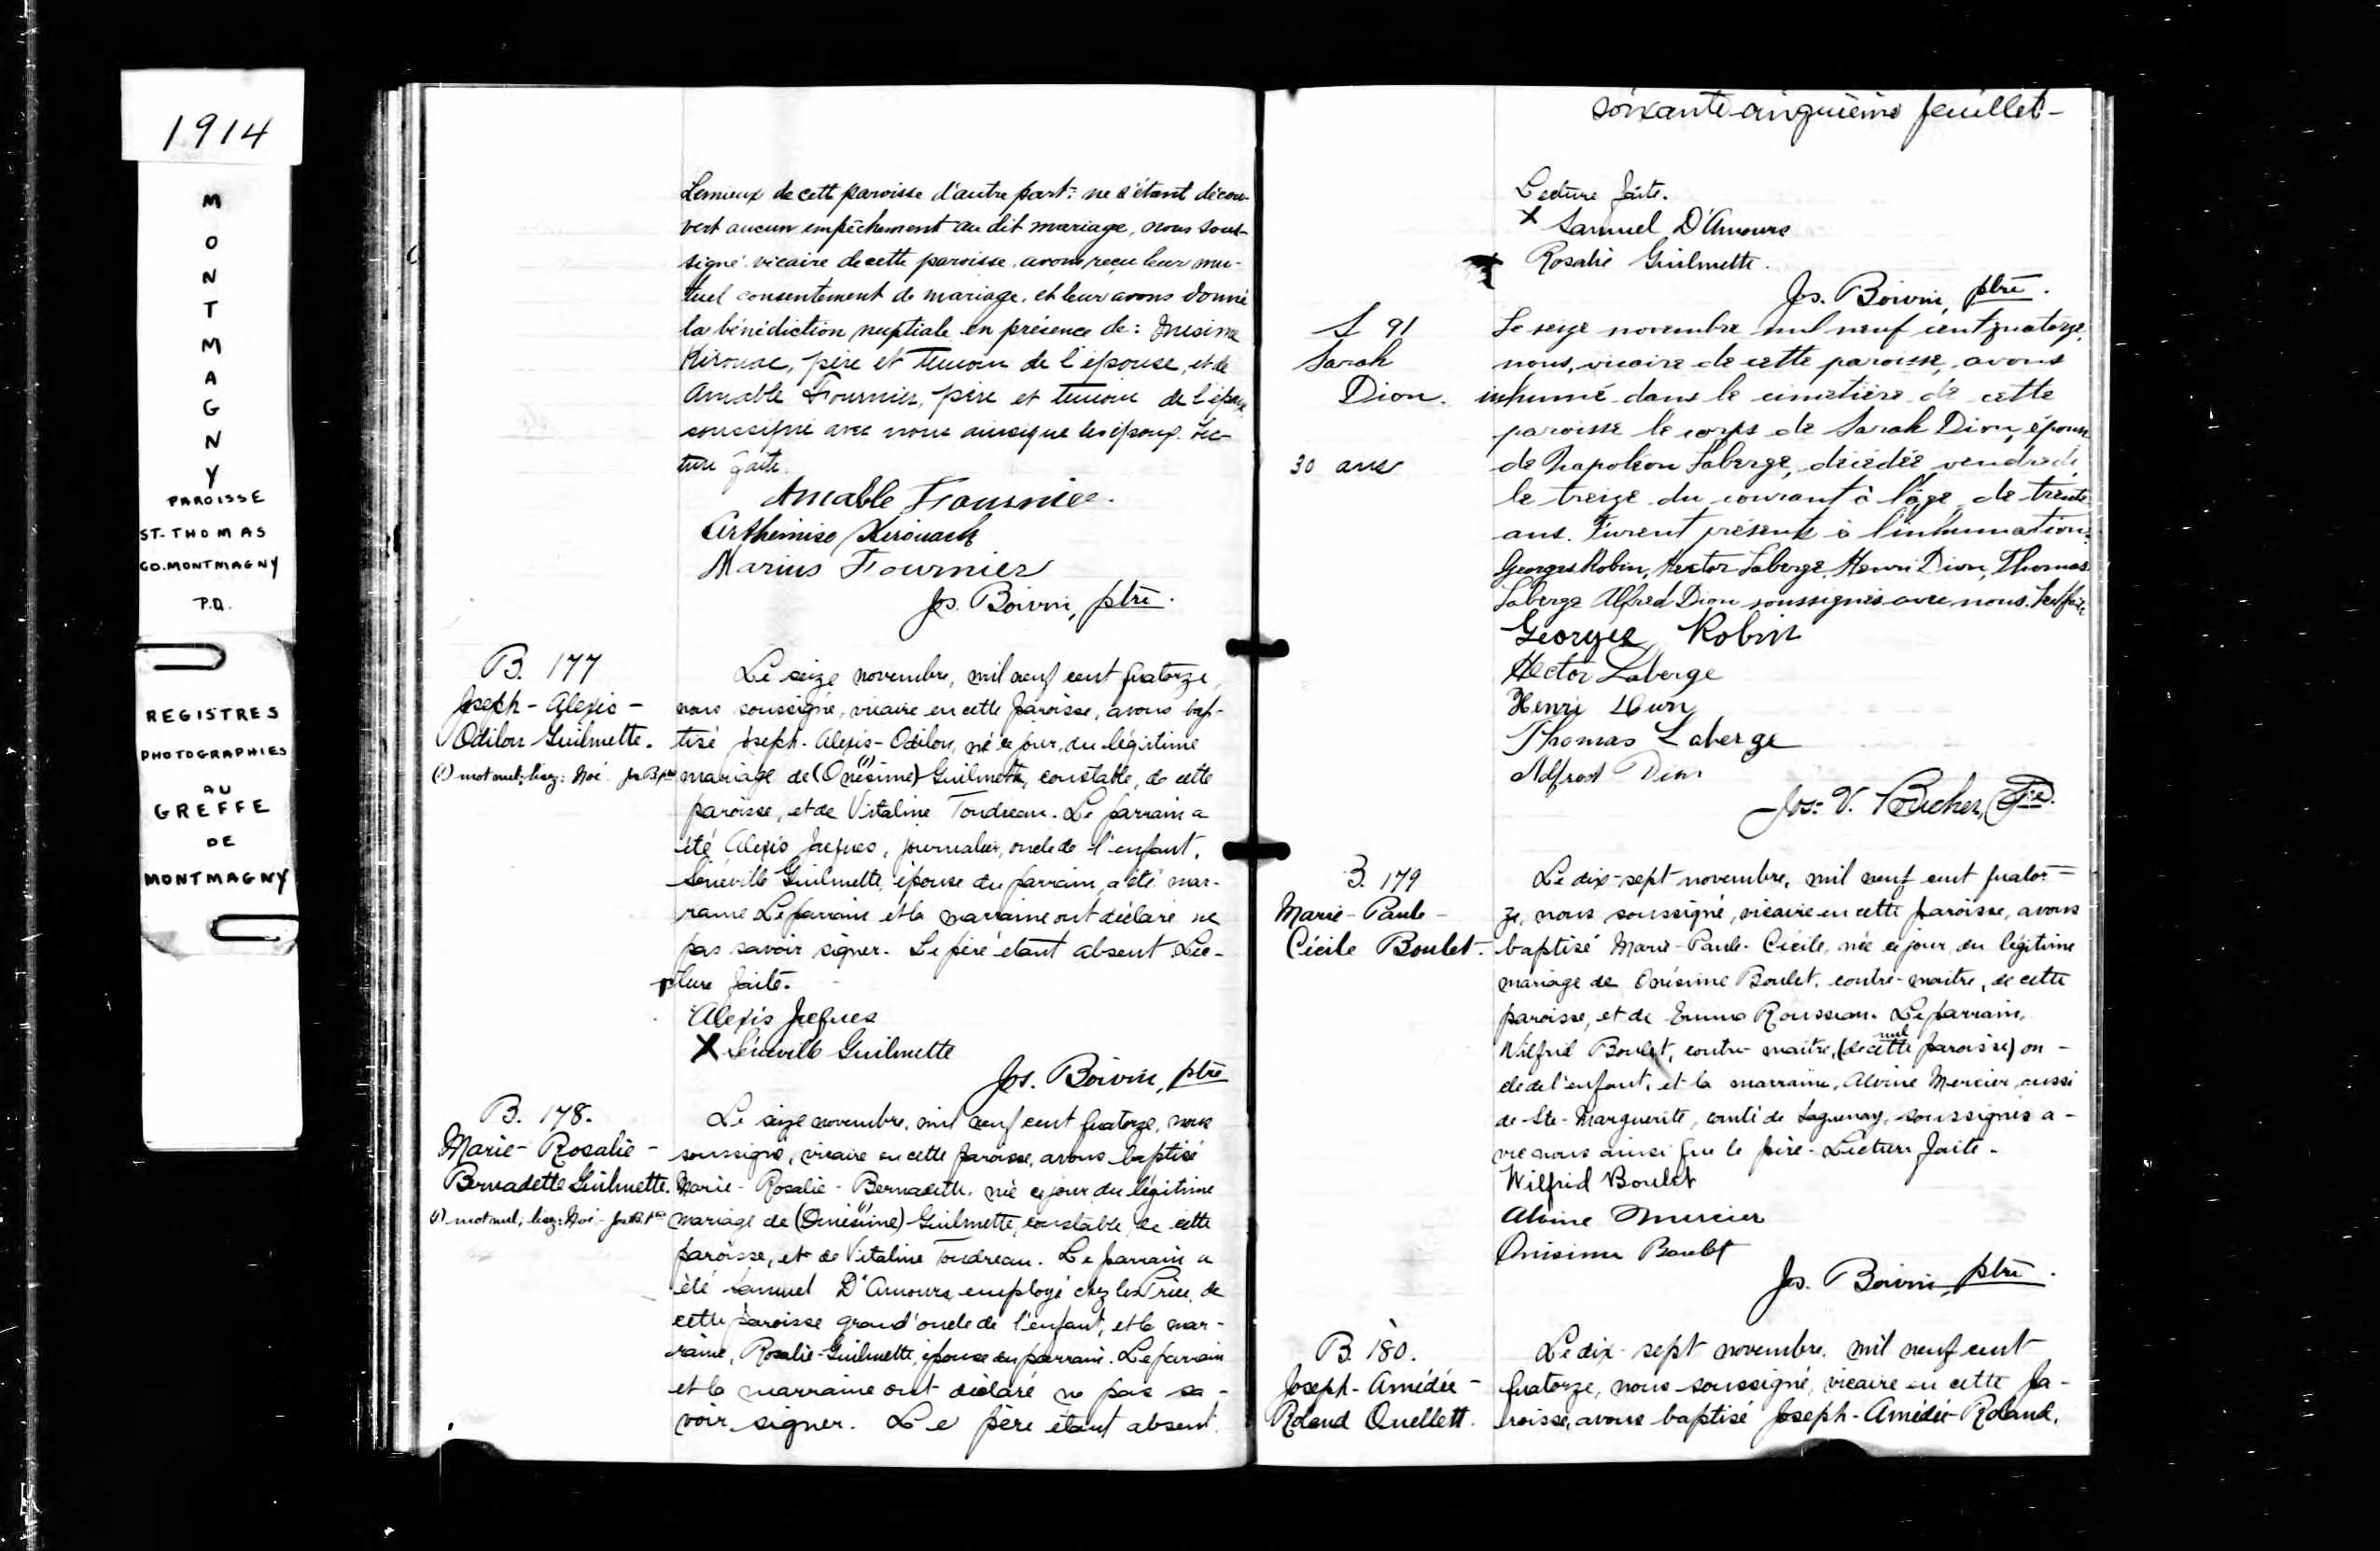 1914
M
O
N
T
M
A
G
N
Y
PAROISSE
ST-THOMAS
CO.MONTMAGNY
P.Q.
REGISTRES
PHOTOGRAPHIES
AU
GREFFE
DE
MONTMAGNY
Lemieux de cett paroisse d'autre part: ne s'étant décou-
vert aucun empêchement au dit mariage, nous sous-
signé vicaire de cette paroisse avons reçu leur mu-
tuel consentement de mariage, et leur avons donné
la bénédiction nuptiale en présence de: Onésime
Kirouac, père et témoin de l'épouse, et de
Amable Fournier, père et témoin de l'époux
soussigné avec nous ainsi que les époux. Lec-
ture faite.
Amable Fournier.
Arthémise Kirouack
Marius Fournier
Jos. Boivin, ptre.
B. 177
Joseph-Alexis-
Odilon Guilmette.
(1) mot nul; lisez: Noé. Jos B. ptre
Le seize novembre, mil neuf cent quatorze,
nous soussigné, vicaire en cette paroisse, avons bap-
tisé Joseph-Alexis-Odilon, né ce jour, du légitime
mariage de (Onésime) (1) Guilmette, constable, de cette
paroisse, et de Vitaline Toudreau. Le parrain a
été Alexis Jacques, journalier, oncle de l'enfant.
Séneville Guilmette, épouse du parrain, a été mar-
raine. Le parrain et la marraine ont déclaré ne
pas savoir signer. Le père étant absent. Lec-
ture faite.
Alexis Jacques
X Séneville Guilmette
Jos. Boivin, ptre
B. 178.
Marie-Rosalie-
Bernadette Guilmette.
(1) mot nul; lisez: Noé - Jos. B. ptre
Le seize novembre, mil neuf cent quatorze, nous
soussigné, vicaire en cette paroisse, avons baptisé
Marie-Rosalie-Bernadette, née ce jour du légitime
mariage de (Onésime) (1) Guilmette, constable, de cette
paroisse, et de Vitaline Toudreau. Le parrain a
été Samuel D'Amours, employé chez les Price, de
cette paroisse grand'oncle de l'enfant, et la mar-
raine, Rosalie Guilmette, épouse du parrain. Le parrain
et la marraine ont déclaré ne pas sa-
voir signer. Le père étant absent.
soixante-cinquième feuillet-
Lecture faite.
X Samuel D'Amours
Rosalie Guilmette.
Jos. Boivin, ptre.
S 91
Sarah
Dion.
30 ans
Le seize novembre mil neuf cent quatorze,
nous, vicaire de cette paroisse, avons
inhumé dans le cimetière de cette
paroisse le corps de Sarah Dion, épouse
de Napoléon Laberge, décédée vendredi,
le treize du courant à l'âge de trente
ans. Furent présents à l'inhumation:
Georges Robin, Hector Laberge, Henri Dion, Thomas
Laberge Alfred Dion soussignés avec nous. Lect faite
Georges Robin
Hector Laberge
Henri Dion
Thomas Laberge
Alfred Dion
Jos. V. Boucher, Ptre.
B. 179
Marie-Paule-
Cécile Boulet.
Le dix-sept novembre, mil neuf cent quator-
ze, nous soussigné, vicaire en cette paroisse, avons
baptisé Marie-Paule-Cécile, née ce jour du légitime
mariage de Onésime Boulet, contre-maître, de cette
paroisse, et de Emma Rousseau. Le parrain,
Wilfrid Boulet, contre-maître, (de cette paroisse) nul on-
cle de l'enfant, et la marraine, Alvine Mercier, aussi
de Ste-Marguerite, comté de Saguenay, soussignés a-
vec nous ainsi que le père. Lecture faite.
Wilfrid Boulet
Alvine Mercier
Onésime Boulet
Jos. Boivin, ptre.
B. 180.
Joseph-Amédée-
Roland Ouellett.
Le dix-sept novembre, mil neuf cent
quatorze, nous soussigné, vicaire en cette pa-
roisse, avons baptisé Joseph-Amédée-Roland,